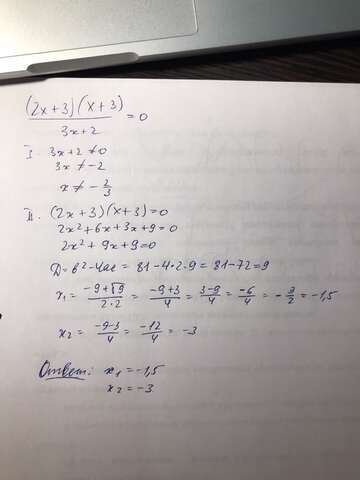 (2x+3)(x+3)/3x+2 = 0
I. 3x+2 ≠ 0
3x ≠ -2
x ≠ -2/3
II. (2x+3)(x+3)=0
2x²+6x+3x+9=0
2x²+9x+9=0
D=в²-4ac = 81-4·2·9 = 81-72=9
x₁ = -9+√9/2·2 = -9+3/4 = 3-9/4 = -6/4 = -3/2 = -1,5
x₂ = -9-3/4 = -12/4 = -3
Ответ: x₁=-1,5
x₂=-3